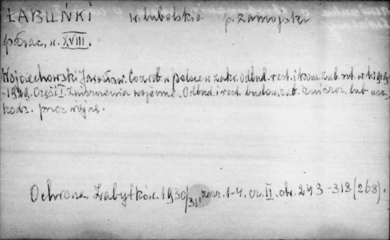 ŁABUŃKI w. lubelskie p. zamojski
pałac, w. XVIII.
Wojciechowski Jarosław. Co zrob. w Polsce w zakr. odbud. rest. i kons. zab. od. w. w ki 1919
-1929. Część I. Zniszczenia wojenne. Odbud. i rest. budow. zab. zniszcz. lub usz-
kodz. przez wojnę.
Ochrona Zabytków. 1930/31, zesz. 1-4. cz. II. str. 243-318 (268).